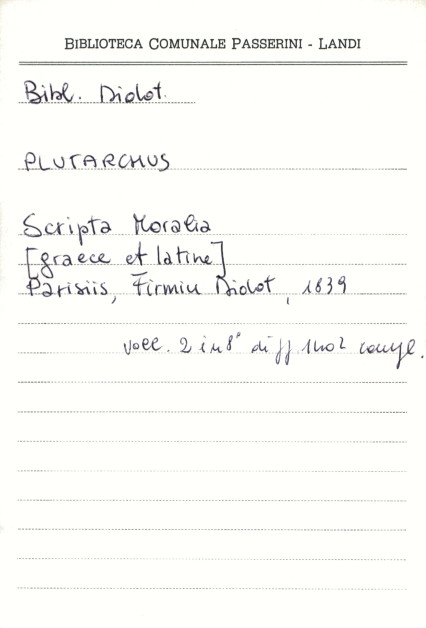 BIBLIOTECA COMUNALE PASSERINI - LANDI
Bibl. Didot.
PLUTARCHUS
Scripta Moralia
[graece et latine]
Parisiis, Firmin Didot, 1839
voll. 2 in 8° di ff. compl.